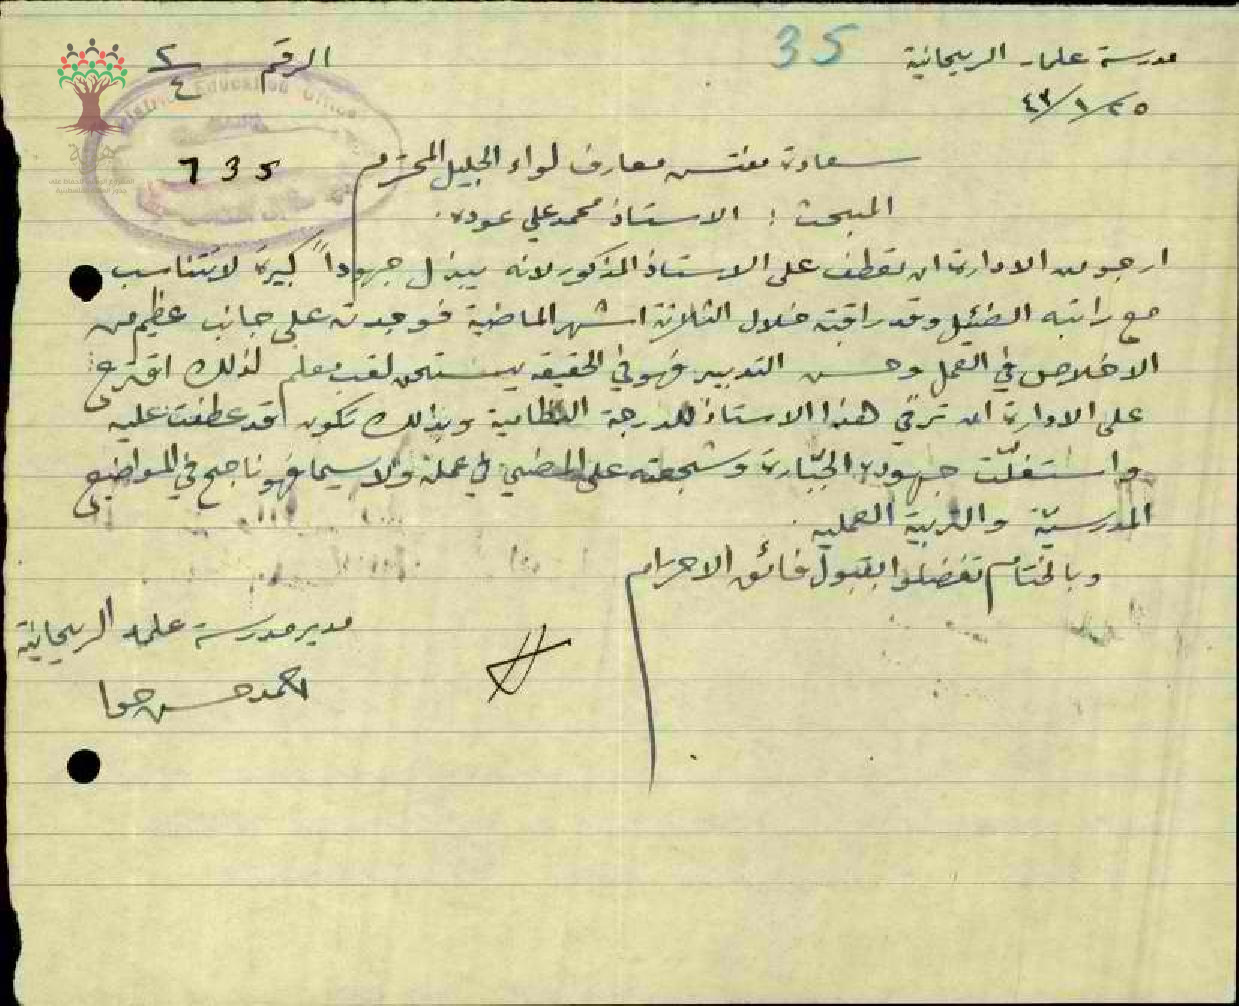 مدرسة علماء الريحانية
35
الرقم ٢/٤
٢٥/١/٤٣
District Education Office
735
سعادة مفتش معارف لواء الجليل المحترم
المبحث : الاستاذ محمد علي عوده.
ارجو من الادارة ان تعطف على الاستاذ المذكور لانه يبذل جهوداً كبيرة لا تتناسب
مع راتبه الضئيل وقد راقبته خلال الثلاثة اشهر الماضية فوجدته على جانب عظيم من
الاخلاص في العمل وحسن التدبير فهو في الحقيقه يستحق لقب معلم لذلك اقترح
على الادارة ان ترقي هذا الاستاذ للدرجة وبذلك تكون قد عطفت عليه
واستغلّت جهوده الجبّارة وشجعته على المضي في عمله ولا سيما فهو ناجح في المواضيع
المدرسيّة والتربية العمليه.
وبالختام تفضلوا بقبول فائق الاحترام
مدير مدرسة علماء الريحانية
احمد حسن حوا